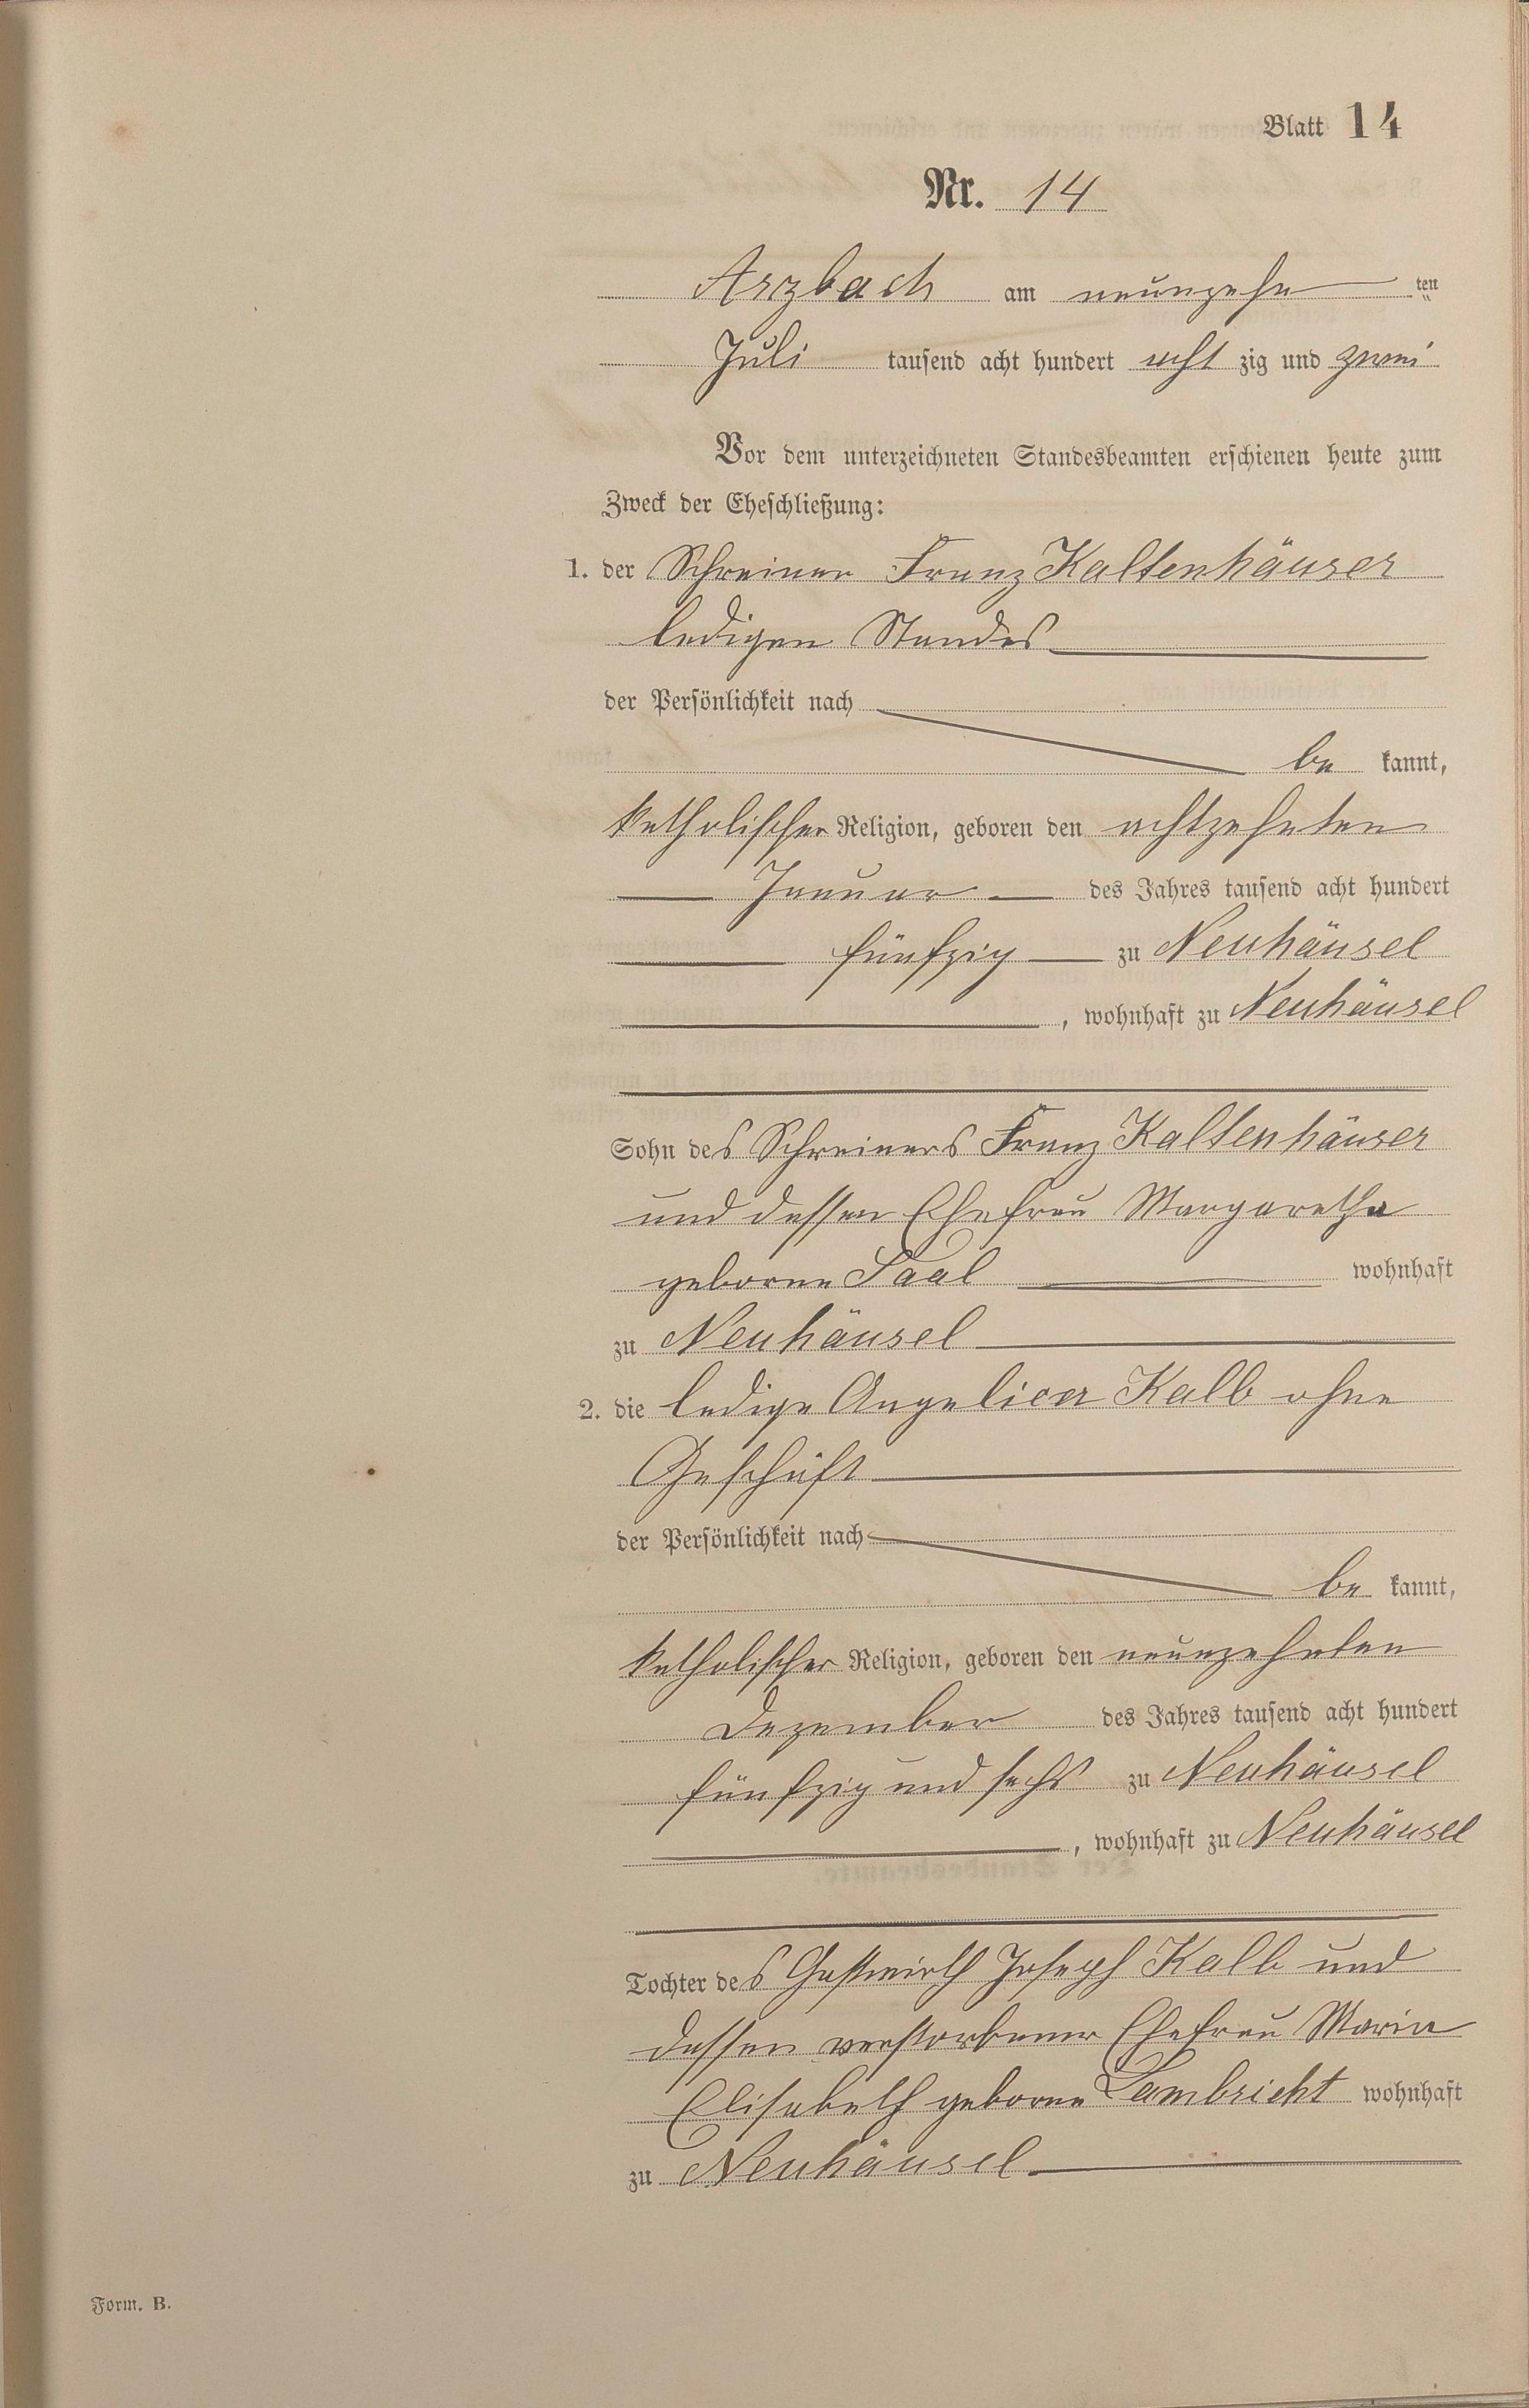 Blatt 14
Nr. 14
Arzbach am neunzehn ten
Juli tausend acht hundert acht zig und zwei
Vor dem unterzeichneten Standesbeamten erschienen heute zum
Zweck der Eheschließung:
1. der Schreiner Franz Kaltenhäuser
ledigen Standes
der Persönlichkeit nach
be kannt,
katholischer Religion, geboren den achtzehnten
Januar des Jahres tausend acht hundert
fünfzig zu Neuhäusel
, wohnhaft zu Neuhäusel
Sohn des Schreiners Franz Kaltenhäuser
und dessen Ehefrau Margaretha
geborne Saal wohnhaft
zu Neuhäusel
2. die ledige Angelica Kalb ohne
Geschäft
der Persönlichkeit nach
be kannt,
katholischer Religion, geboren den neunzehnten
Dezember des Jahres tausend acht hundert
fünfzig und sechs zu Neuhäusel
, wohnhaft zu Neuhäusel
Tochter des Gastwirth Joseph Kalb und
dessen verstorbener Ehefrau Maria
Elisabeth geborne Lambricht wohnhaft
zu Neuhäusel
Form. B.